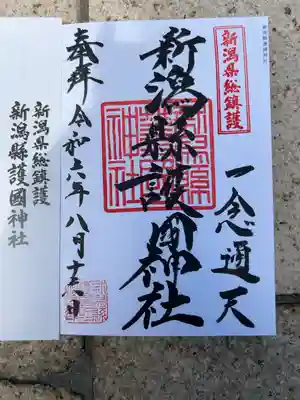 新潟県総鎮護
一念通天
新潟縣護國神社
奉拝 令和六年八月十六日
新潟県総鎮護
新潟縣護國神社